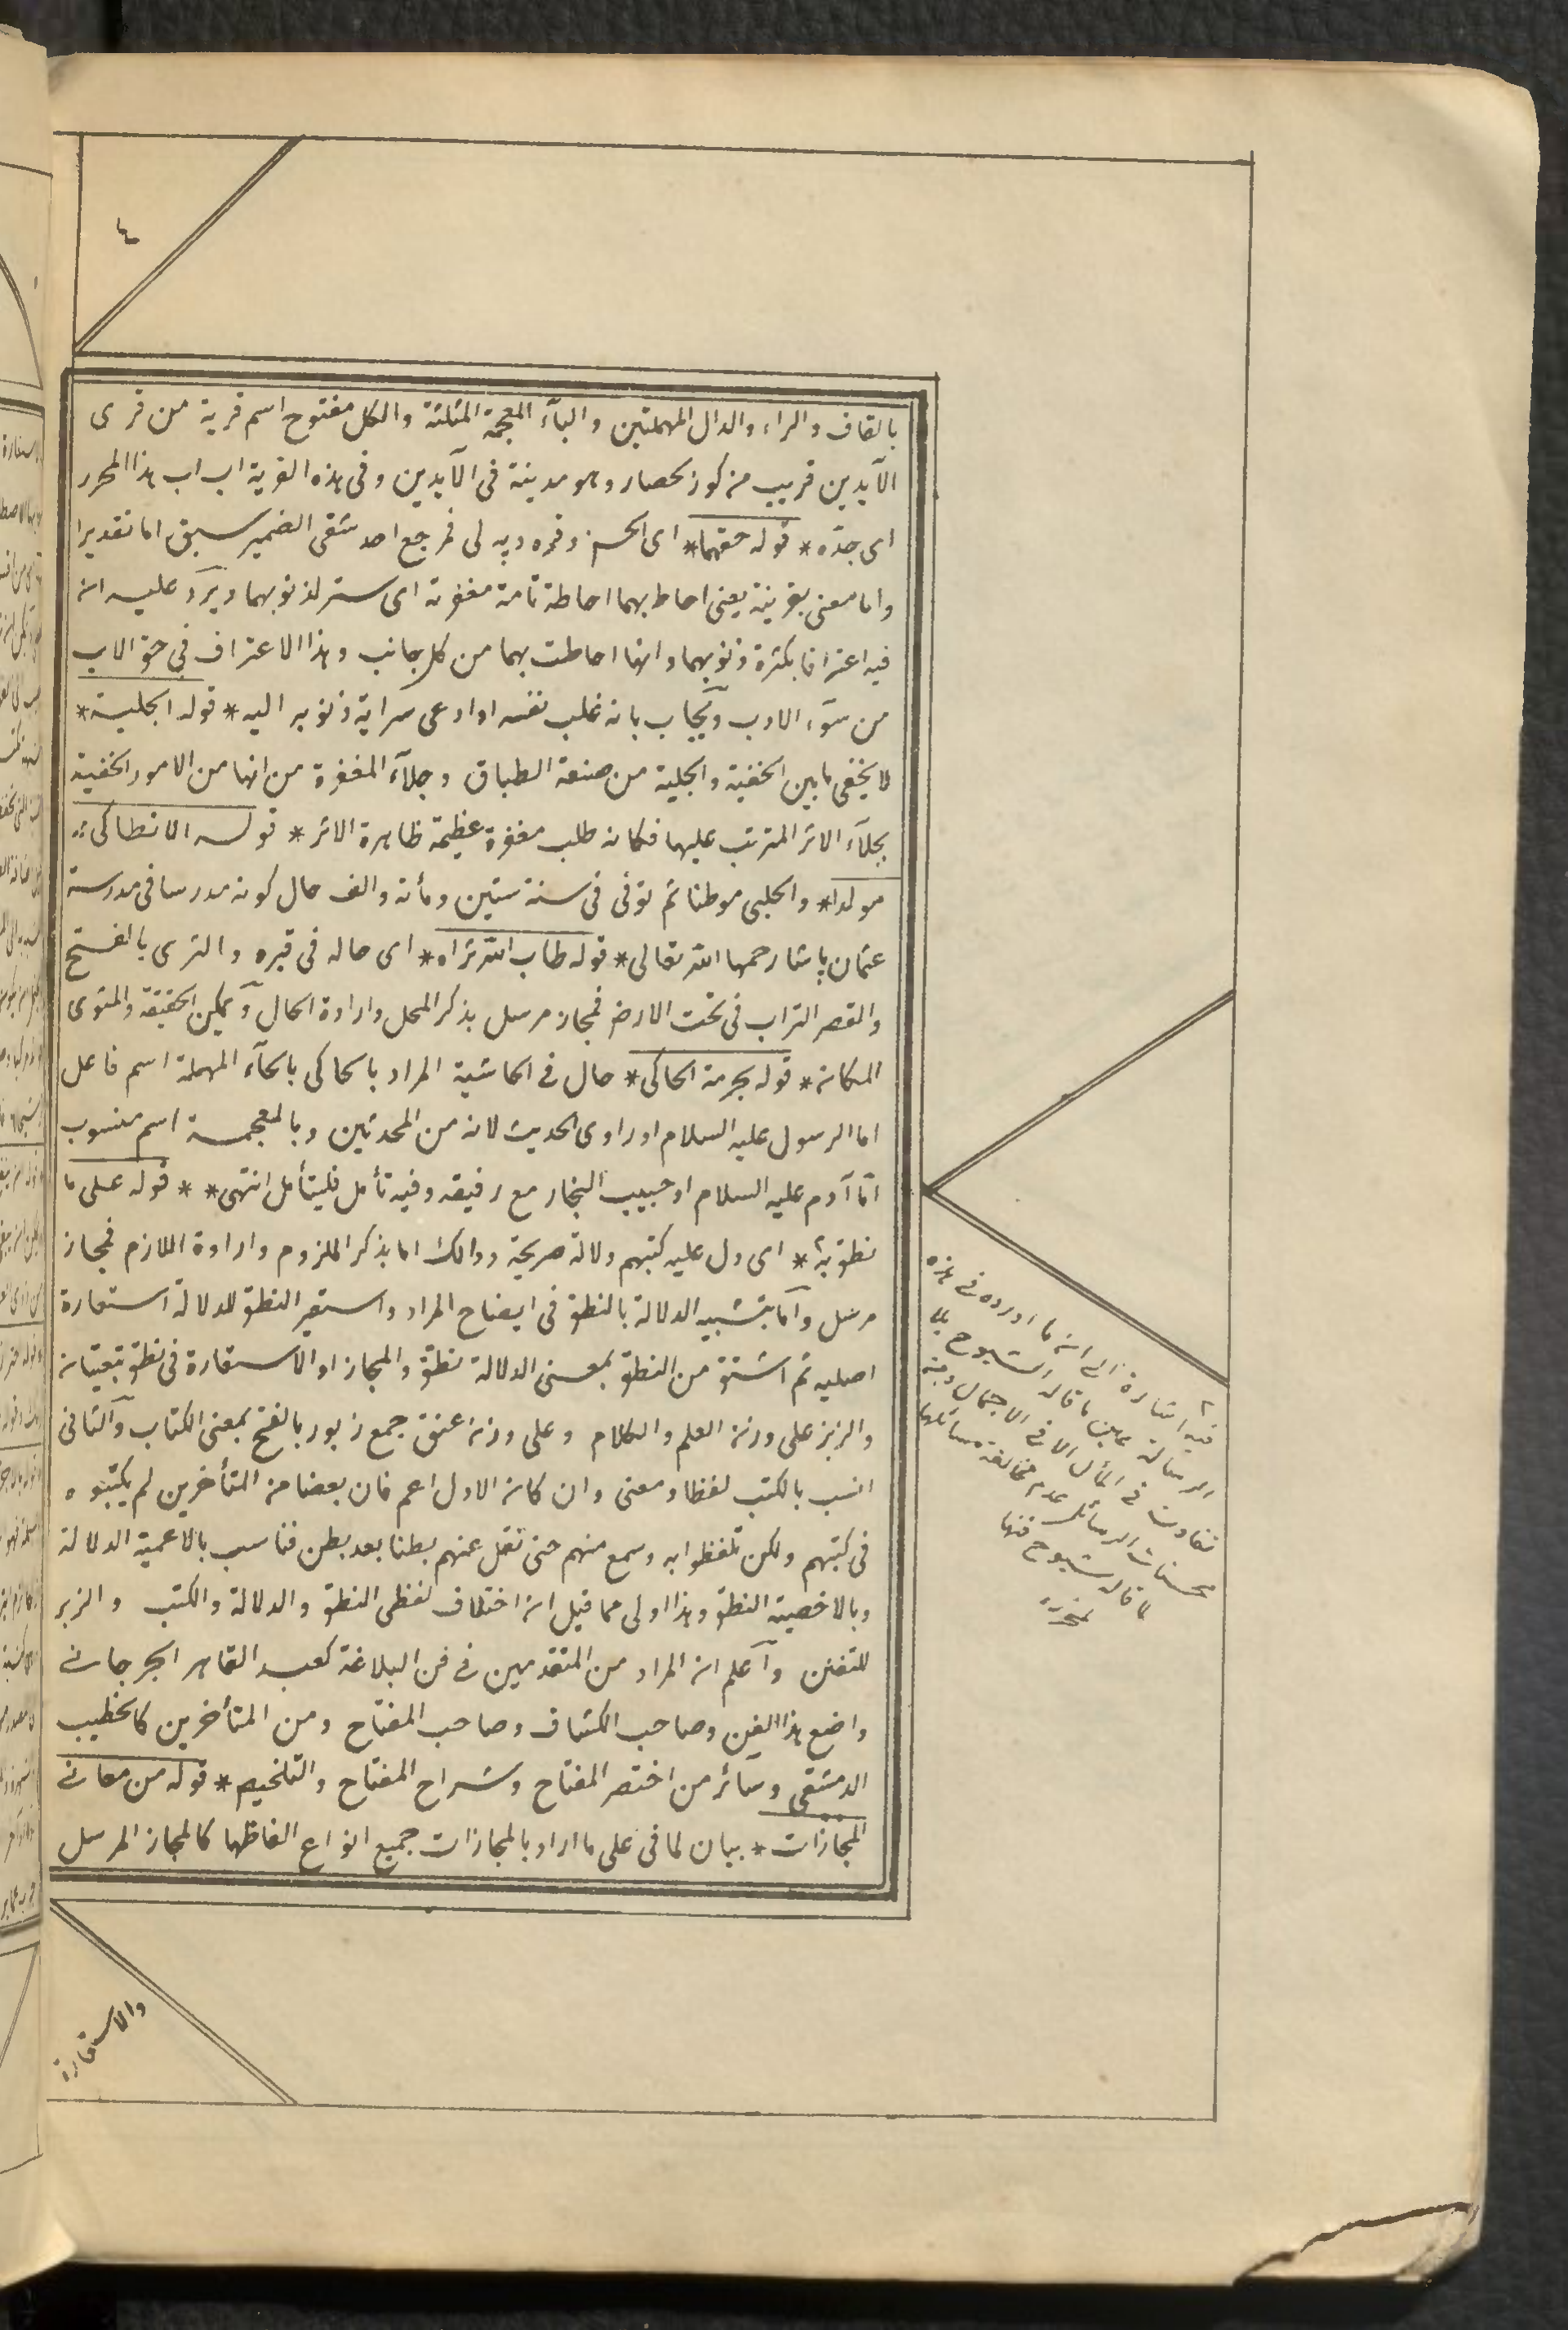 ٤
بالقاف والراء والدال المهملتين والبآء المعجمة المثلثة والكل مفتوح اسم قرية من قرى
الآيدين قريب من كوزلحصار وهو مدينة فى الآيدين وفى هذه القرية اب اب هذا المحرر
اى جدّه * قوله حقهما * اى الحسن وقره دپه لى فمرجع احد شقى الضمير سبق اما تقديرا
واما معنى بقرينة يعنى احاط بهما احاطة تامة مغفرته اى ستر لذنوبهما ويرد عليه ان
فيه اعترافا بكثرة ذنوبهما وانها احاطت بهما من كل جانب وهذا الاعتراف فى حق الاب
من سوء الادب ويجاب بانه غلب نفسه او ادعى سراية ذنوبه اليه * قوله الجلية *
لا يخفى ما بين الخفية والجلية من صنعة الطباق وجلآء المغفرة من انها من الامور الخفية
بجلآء الاثر المترتب عليها فكانه طلب مغفرة عظيمة ظاهرة الاثر * قوله الانطاكى
مولدا * والحلبى موطنا ثم توفى فى سنة ستين ومأة والف حال كونه مدرسا فى مدرسة
عثمان پاشا رحمهما الله تعالى * قوله طاب الله ثراه * اى حاله فى قبره والثرى بالفتح
والقصر التراب فى تحت الارض فمجاز مرسل بذكر المحل وارادة الحال ويمكن الحقيقة والمثوى
المكان * قوله بحرمة الحاكى * حال فى الحاشية المراد بالحاكى بالحآء المهملة اسم فاعل
اما الرسول عليه السلام او راوى الحديث لانه من المحدثين وبالمعجمة اسم منسوب
اما آدم عليه السلام او حبيب النجار مع رفيقه وفيه تأمل فليتأمل انتهى * * قوله على ما
نطق به * اى دل عليه كتبهم دلالة صريحة وذلك اما بذكر الملزوم وارادة اللازم فمجاز
مرسل واما بتشبيه الدلالة بالنطق فى ايضاح المراد واستعير النطق للدلالة استعارة
اصلية ثم اشتق من النطق بمعنى الدلالة نطق والمجاز او الاستعارة فى نطق تبعيتان
والزبر على وزن العلم والكلام وعلى وزن عنق جمع زبور بالفتح بمعنى الكتاب والثانى
انسب بالكتب لفظا ومعنى وان كان الاول اعم فان بعضا من المتأخرين لم يكتبوه
فى كتبهم ولكن تلفظوا به وسمع منهم حتى نقل عنهم بطنا بعد بطن فناسب بالاعمية الدلالة
وبالاخصية النطق وهذا اولى مما قيل ان اختلاف لفظى النطق والدلالة والكتب والزبر
للتفنن واعلم ان المراد من المتقدمين فى فن البلاغة كعبد القاهر الجرجانى
واضع هذا الفن وصاحب الكشاف وصاحب المفتاح ومن المتأخرين كالخطيب
الدمشقى وسآئر من اختصر المفتاح وشراح المفتاح والتلخيص * قوله من معانى
المجازات * بيان لما فى على ما اراد بالمجازات جميع انواع الفاظها كالمجاز المرسل
٢ فيه اشارة الى ان ما اورده فى هذه
الرسالة عين ما قاله الشيوخ بلا
تفاوت فى المآل الا فى الاجمال
محسنات الرسائل عدم مخالفة مسائلها
لما قاله شيوخ فنها
والاستعارة